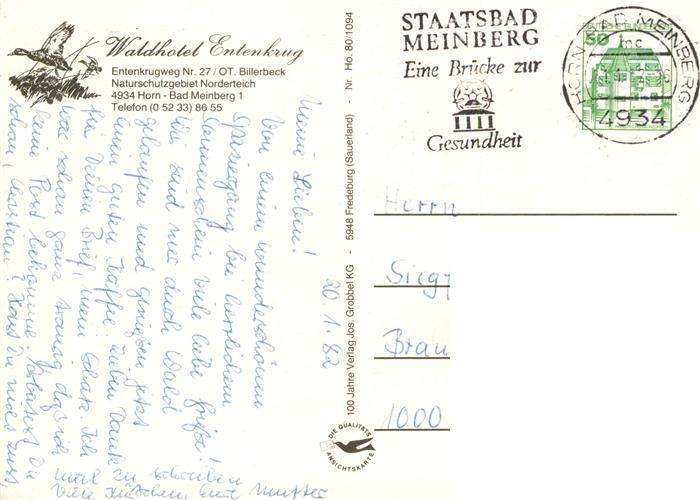 Waldhotel Entenkrug
Entenkrugweg Nr. 27 / OT. Billerbeck
Naturschutzgebiet Norderteich
4934 Horn - Bad Meinberg 1
Telefon (0 52 33) 86 55
STAATSBAD
MEINBERG
Eine Brücke zur
Gesundheit
50
HORN-BAD MEINBERG
mc
4934
Nr. Ho. 80/1094
5948 Fredeburg (Sauerland)
100 Jahre Verlag Jos. Grobbel KG
DIE QUALITÄTS
ANSICHTSKARTE
20.1.82
Meine Lieben!
Von einem wunderschönen
Spaziergang bei herrlichem
Sonnenschein viele liebe Grüße!
Wir sind nur durch Wald
gelaufen und genießen jetzt
einen guten Kaffee. Lieben Dank
für Deinen Brief, mein Schatz. Ich
war schon ganz traurig, daß ich
keine Post bekomme.
schon, Hast Du
mal zu schreiben
Viele Küßchen, Eure Mutter
Herrn
Sieg
Brau
1000